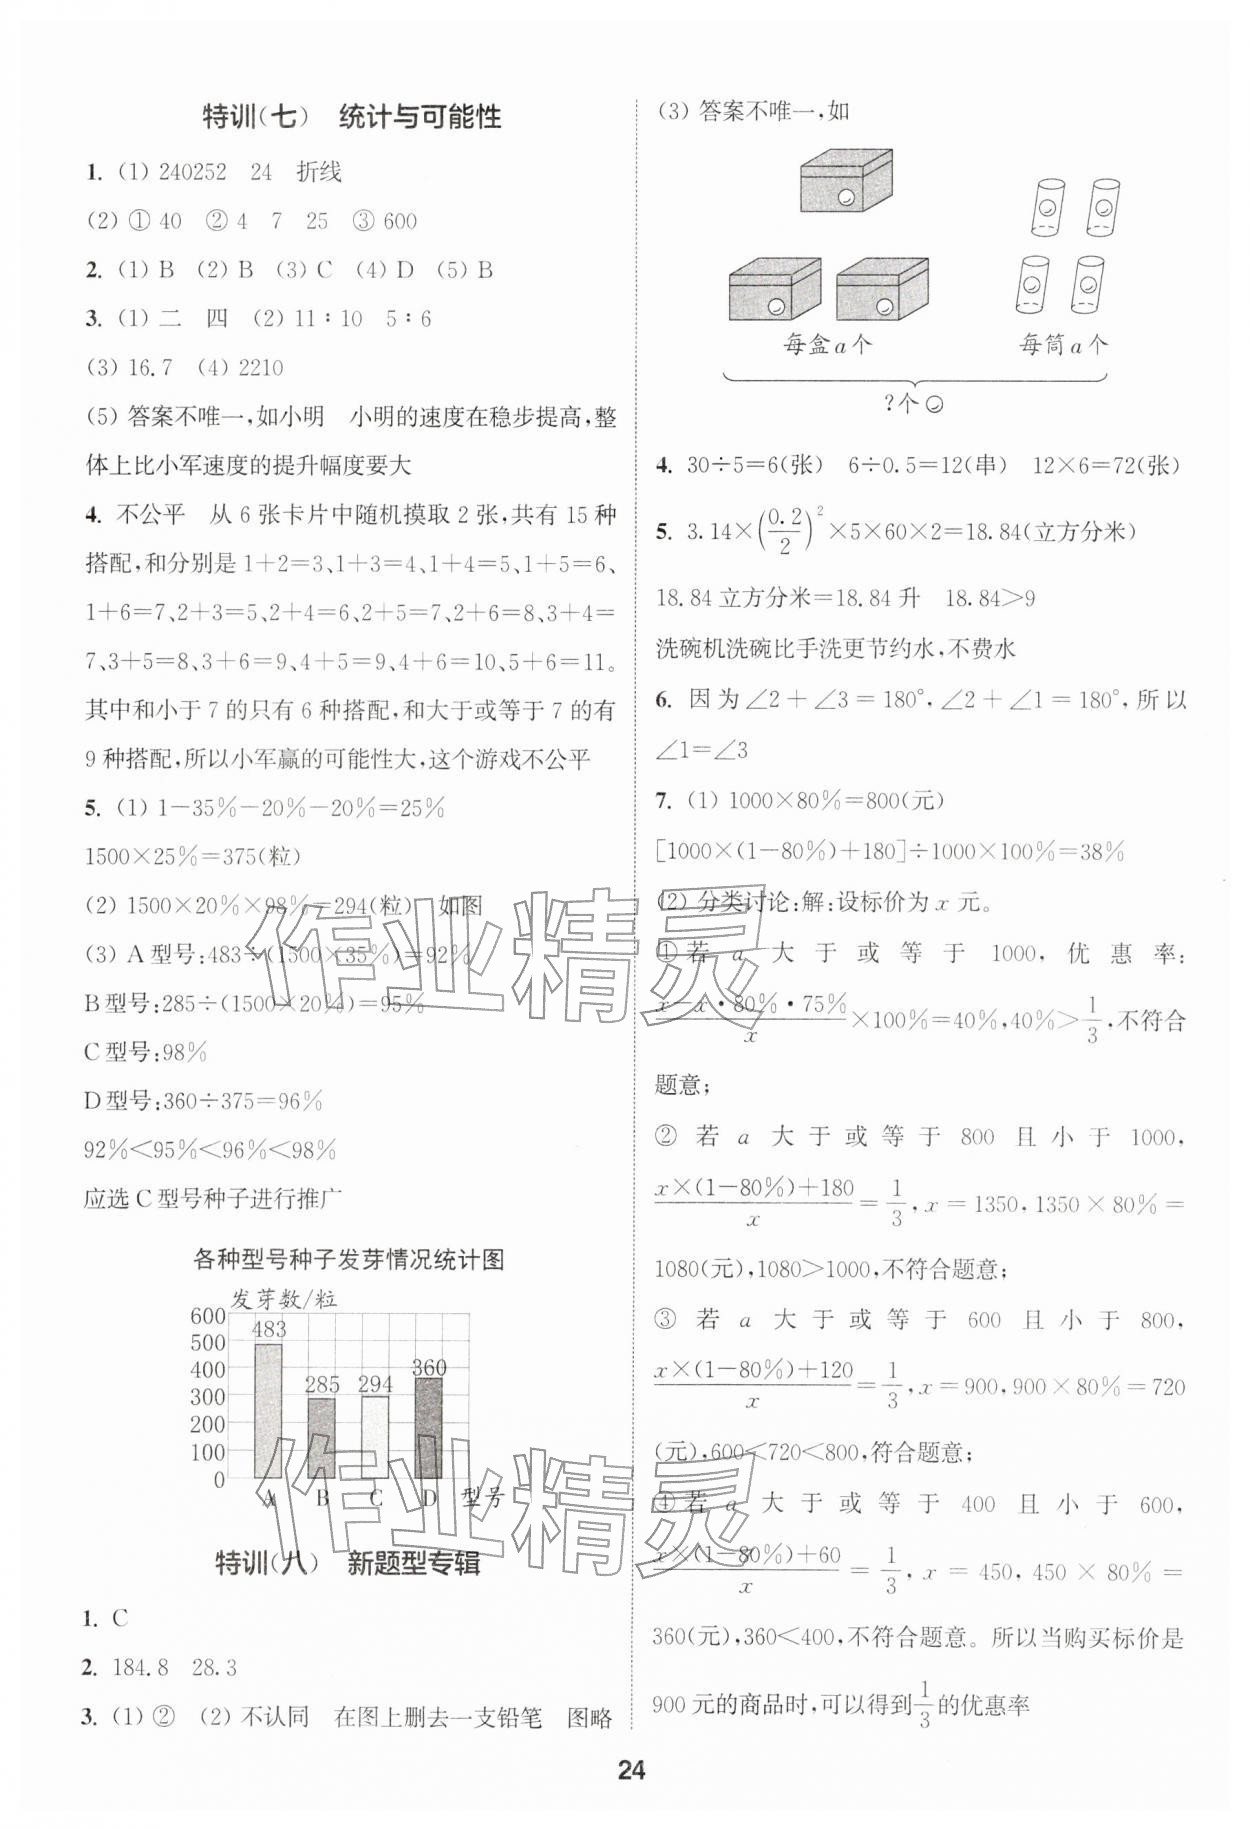 特训(七) 统计与可能性
1. (1) 240252 24 折线
(2) ① 40 ② 4 7 25 ③ 600
2. (1) B (2) B (3) C (4) D (5) B
3. (1) 二 四 (2) 11∶10 5∶6
(3) 16.7 (4) 2210
(5) 答案不唯一,如小明 小明的速度在稳步提高,整
体上比小军速度的提升幅度要大
4. 不公平 从 6 张卡片中随机摸取 2 张,共有 15 种
搭配,和分别是 1+2=3、1+3=4、1+4=5、1+5=6、
1+6=7、2+3=5、2+4=6、2+5=7、2+6=8、3+4=
7、3+5=8、3+6=9、4+5=9、4+6=10、5+6=11。
其中和小于 7 的只有 6 种搭配,和大于或等于 7 的有
9 种搭配,所以小军赢的可能性大,这个游戏不公平
5. (1) 1-35%-20%-20%=25%
1500×25%=375(粒)
(2) 1500×20%×98%=294(粒) 如图
(3) A 型号:483÷(1500×35%)=92%
B 型号:285÷(1500×20%)=95%
C 型号:98%
D 型号:360÷375=96%
92%<95%<96%<98%
应选 C 型号种子进行推广
各种型号种子发芽情况统计图
发芽数/粒
600
500
400
300
200
100
0
483
285
294
360
A B C D 型号
特训(八) 新题型专辑
1. C
2. 184.8 28.3
3. (1) ② (2) 不认同 在图上删去一支铅笔 图略
(3) 答案不唯一,如
每盒a个 每筒a个
?个
4. 30÷5=6(张) 6÷0.5=12(串) 12×6=72(张)
5. 3.14×(0.2/2)²×5×60×2=18.84(立方分米)
18.84 立方分米=18.84 升 18.84>9
洗碗机洗碗比手洗更节约水,不费水
6. 因为∠2+∠3=180°,∠2+∠1=180°,所以
∠1=∠3
7. (1) 1000×80%=800(元)
[1000×(1-80%)+180]÷1000×100%=38%
(2) 分类讨论:解:设标价为 x 元。
①若 a 大于或等于 1000,优惠率:
(x-x·80%·75%)/x×100%=40%,40%>1/3,不符合
题意;
② 若 a 大于或等于 800 且小于 1000,
(x×(1-80%)+180)/x=1/3,x=1350,1350×80%=
1080(元),1080>1000,不符合题意;
③ 若 a 大于或等于 600 且小于 800,
(x×(1-80%)+120)/x=1/3,x=900,900×80%=720
(元),600<720<800,符合题意;
④若 a 大于或等于 400 且小于 600,
(x×(1-80%)+60)/x=1/3,x=450,450×80%=
360(元),360<400,不符合题意。所以当购买标价是
900 元的商品时,可以得到1/3的优惠率
24
作业精灵
作业精灵